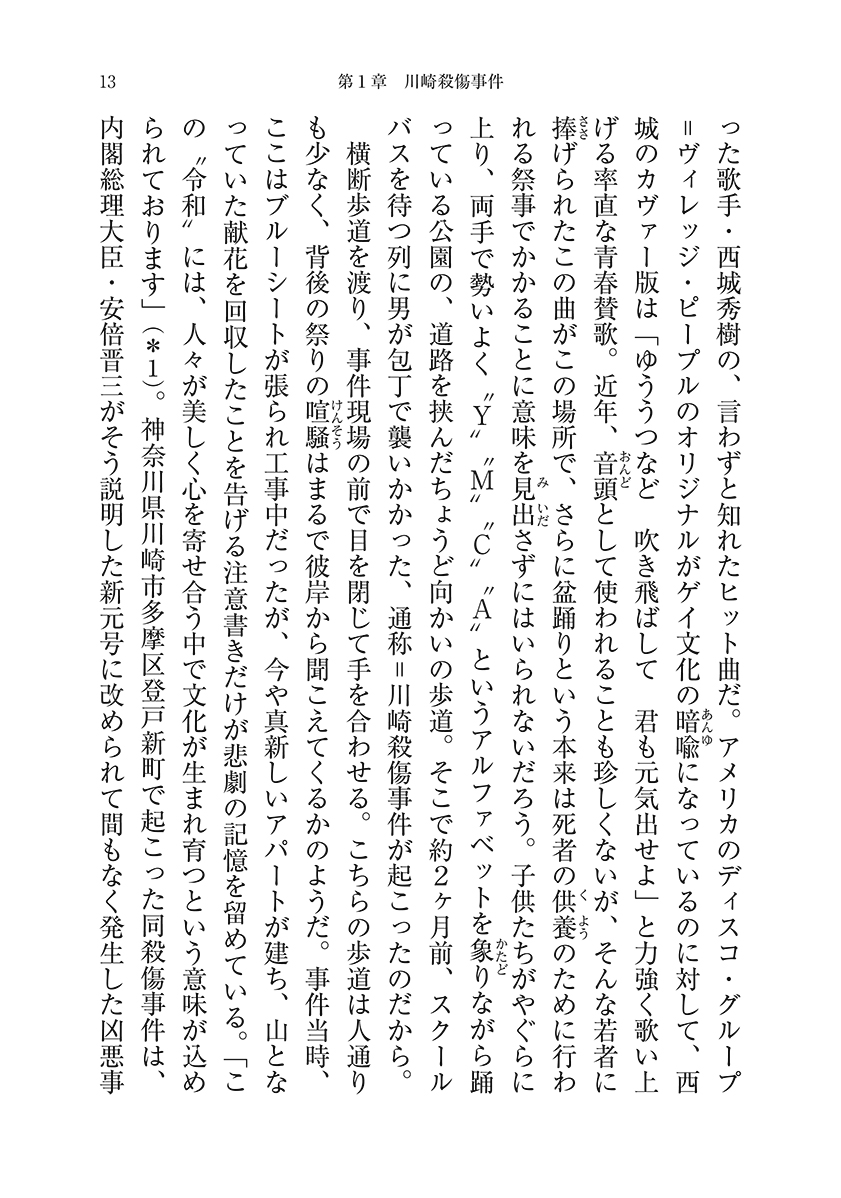 13
第1章　川崎殺傷事件
った歌手・西城秀樹の、言わずと知れたヒット曲だ。アメリカのディスコ・グループ
＝ヴィレッジ・ピープルのオリジナルがゲイ文化の暗喩になっているのに対して、西
城のカヴァー版は「ゆううつなど　吹き飛ばして　君も元気出せよ」と力強く歌い上
げる率直な青春賛歌。近年、音頭として使われることも珍しくないが、そんな若者に
捧げられたこの曲がこの場所で、さらに盆踊りという本来は死者の供養のために行わ
れる祭事でかかることに意味を見出さずにはいられないだろう。子供たちがやぐらに
上り、両手で勢いよく〝Y〟〝M〟〝C〟〝A〟というアルファベットを象りながら踊
っている公園の、道路を挟んだちょうど向かいの歩道。そこで約2ヶ月前、スクール
バスを待つ列に男が包丁で襲いかかった、通称＝川崎殺傷事件が起こったのだから。
　横断歩道を渡り、事件現場の前で目を閉じて手を合わせる。こちらの歩道は人通り
も少なく、背後の祭りの喧騒はまるで彼岸から聞こえてくるかのようだ。事件当時、
ここはブルーシートが張られ工事中だったが、今や真新しいアパートが建ち、山とな
っていた献花を回収したことを告げる注意書きだけが悲劇の記憶を留めている。「こ
の〝令和〟には、人々が美しく心を寄せ合う中で文化が生まれ育つという意味が込め
られております」（＊1）。神奈川県川崎市多摩区登戸新町で起こった同殺傷事件は、
内閣総理大臣・安倍晋三がそう説明した新元号に改められて間もなく発生した凶悪事